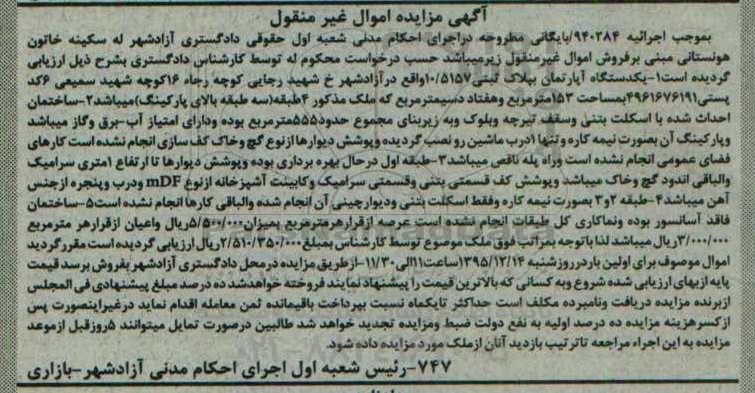 آگهی مزایده اموال غیر منقول
بموجب اجرائیه ۹۴۰۲۸۴/بایگانی مطروحه دراجرای احکام مدنی شعبه اول حقوقی دادگستری آزادشهر له سکینه خاتون
هوتستانی مبنی برفروش اموال غیرمنقول زیرمیباشد حسب درخواست محکوم له توسط کارشناس دادگستری بشرح ذیل ارزیابی
گردیده است۱-یکدستگاه آپارتمان بپلاک ثبتی۱۰/۵۱۵۷واقع درآزادشهر خ شهید رجایی کوچه رجاء ۱۶کوچه شهید سمیعی ۶کد
پستی۴۹۶۱۶۷۶۱۹۱بمساحت ۱۵۳مترمربع وهفتاد دسیمترمربع که ملک مذکور ۴طبقه(سه طبقه بالای پارکینگ)میباشد۲-ساختمان
احداث شده با اسکلت بتنی وسقف تیرچه وبلوک وبه زیربنای مجموع حدود۵۵۵مترمربع بوده ودارای امتیاز آب-برق وگاز میباشد
وپارکینگ آن بصورت نیمه کاره وتنها ۱درب ماشین رو نصب گردیده وپوشش دیوارها ازنوع گچ وخاک کف سازی انجام نشده است کارهای
فضای عمومی انجام نشده است وراه پله ناقص میباشد۳-طبقه اول درحال بهره برداری بوده وپوشش دیوارها تا ارتفاع ۱متری سرامیک
والباقی اندود گچ وخاک میباشد وپوشش کف قسمتی بتنی وقسمتی سرامیک وکابینت آشپزخانه ازنوع mDF ودرب وپنجره ازجنس
آهن میباشد۴-طبقه ۲و۳ بصورت نیمه کاره وفقط اسکلت بتنی ودیوارچینی آن انجام شده والباقی کارها انجام نشده است۵-ساختمان
فاقد آسانسور بوده ونماکاری کل طبقات انجام نشده است عرصه ازقرارهرمترمربع بمیزان۵/۵۰۰/۰۰۰ریال واعیان ازقرارهر مترمربع
۳/۰۰۰/۰۰۰ریال میباشد لذا باتوجه بمراتب فوق ملک موصوع توسط کارشناس بمبلغ۲/۵۱۰/۳۵۰/۰۰۰ریال ارزیابی گردیده است مقررگردید
اموال موصوف برای اولین باردرروزشنبه ۱۳۹۵/۱۲/۱۴ساعت۱۱الی۱۱/۳۰-ازطریق مزایده درمحل دادگستری آزادشهربفروش برسد قیمت
پایه ازبهای ارزیابی شده شروع وبه کسانی که بالاترین قیمت را پیشنهاد نمایند فروخته خواهدشد ده درصد مبلغ پیشنهادی فی المجلس
ازبرنده مزایده دریافت ونامبرده مکلف است حداکثر تایکماه نسبت بپرداخت باقیمانده ثمن معامله اقدام نماید درغیراینصورت پس
ازکسرهزینه مزایده ده درصد اولیه به نفع دولت ضبط ومزایده تجدید خواهد شد طالبین درصورت تمایل میتوانند ۵روزقبل ازموعد
مزایده به این اجراء مراجعه تاترتیب بازدید آنان ازملک مورد مزایده داده شود.
۷۴۷-رئیس شعبه اول اجرای احکام مدنی آزادشهر-بازاری